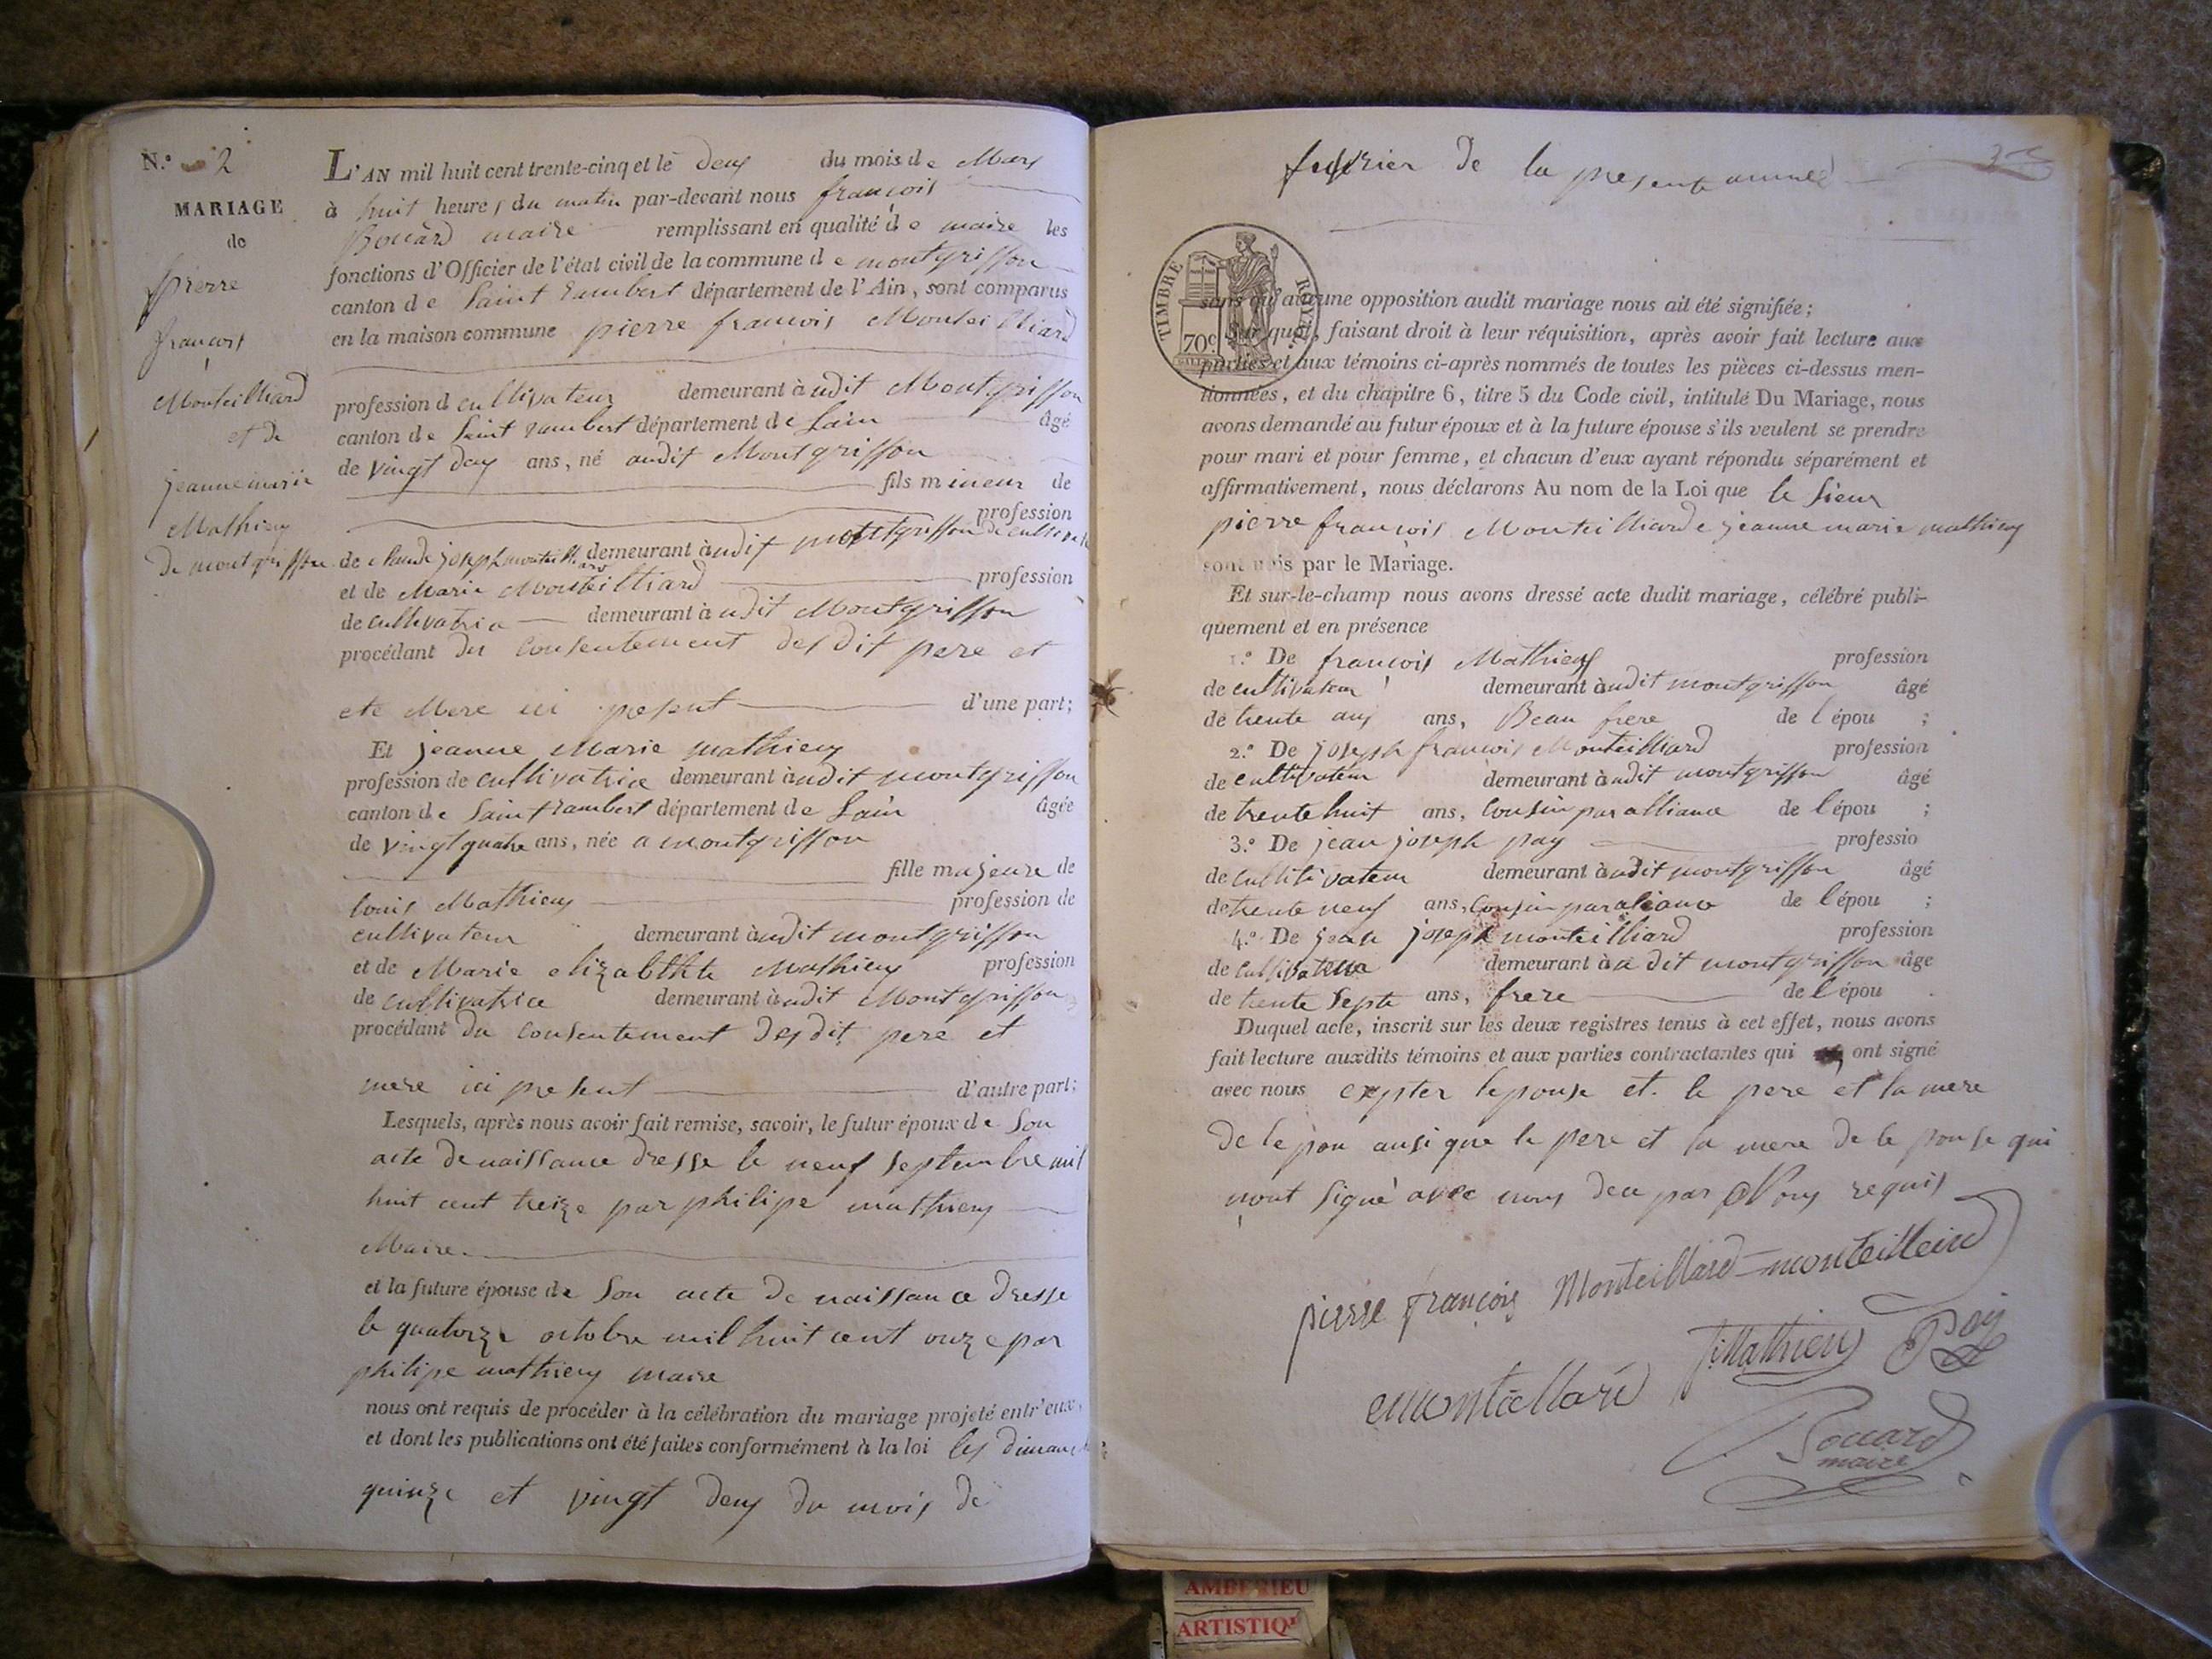 N.º 2
MARIAGE
de
pierre
françois
Monteilliard
et de
jeanne marie
Mathieu
de montgriffon
L'AN mil huit cent trente-cinq et le deux du mois de Mars
à huit heures du matin par-devant nous françois
Bouard maire remplissant en qualité de maire les
fonctions d'Officier de l'état civil de la commune de montgriffon
canton de Saint Rambert département de l'Ain, sont comparus
en la maison commune pierre françois Monteilliard
profession d cultivateur demeurant à udit Montgriffon
canton de Saint rambert département de Lain âgé
de vingt deux ans, né audit Montgriffon
fils mineur de
profession
de claude joseph monteilliard demeurant à udit montgriffon de cultivat
et de Marie Monteilliard profession
de cultivatrice demeurant à udit Montgriffon
procédant du consentement desdit pere et
ete Mere ici present d'une part;
Et jeanne Marie mathieu
profession de cultivatrice demeurant à udit montgriffon
canton de Saint rambert département de Lain âgée
de vingt quatre ans, née a montgriffon
fille majeure de
louis Mathieu profession de
cultivateur demeurant à udit montgriffon
et de Marie elizabthte Mathieu profession
de cultivatrice demeurant à udit Montgriffon
procédant du consentement desdit pere et
mere ici present d'autre part;
Lesquels, après nous avoir fait remise, savoir, le futur époux de Son
acte de naissance dresse le neuf Septembre mil
huit cent treize par philipe mathieu
Maire
et la future épouse de Son acte de naissance dresse
le quatorze octobre mil huit cent onze par
philipe mathieu maire
nous ont requis de procéder à la célébration du mariage projeté entr'eux,
et dont les publications ont été faites conformément à la loi les dimanch
quinze et vingt deux du mois de
fevrier de la presente année
TIMBRE ROYAL
70c.
sans qu'aucune opposition audit mariage nous ait été signifiée;
Sur quoi, faisant droit à leur réquisition, après avoir fait lecture aux
parties et aux témoins ci-après nommés de toutes les pièces ci-dessus men-
tionnées, et du chapitre 6, titre 5 du Code civil, intitulé Du Mariage, nous
avons demandé au futur époux et à la future épouse s'ils veulent se prendre
pour mari et pour femme, et chacun d'eux ayant répondu séparément et
affirmativement, nous déclarons Au nom de la Loi que le Sieur
pierre françois Monteilliard e jeanne marie mathieu
sont unis par le Mariage.
Et sur-le-champ nous avons dressé acte dudit mariage, célébré publi-
quement et en présence
1.º De françois Mathieu profession
de cultivateur demeurant à udit montgriffon âgé
de trente ans, Beau frere de l épou ;
2.º De joseph françois Monteilliard profession
de cultivateur demeurant à udit montgriffon âgé
de trente huit ans, Cousin par alliance de l épou ;
3.º De jean joseph pay professio
de cultitivateur demeurant à udit montgriffon âgé
de trente neuf ans, Cousin par aliance de l épou ;
4.º De jean joseph monteilliard profession
de cultivateur demeurant à a dit montgriffon âgé
de trente Septe ans, frere de l épou
Duquel acte, inscrit sur les deux registres tenus à cet effet, nous avons
fait lecture auxdits témoins et aux parties contractantes qui ont signé
avec nous expter lepouse et le pere et la mere
de lepou ansi que le pere et la mere de le pouse qui
nont signé avec nous de par Nous requis
pierre françois Monteillard monteilleird
f Mathieu Pay
emonteillard
Bouard
maire
AMBERIEU
ARTISTIQ